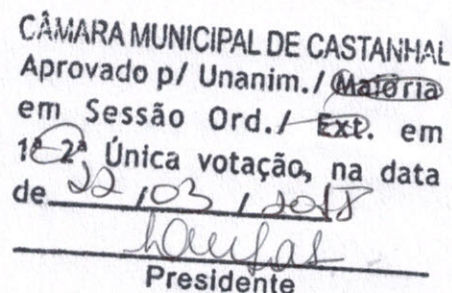 CÂMARA MUNICIPAL DE CASTANHAL
Aprovado p/ Unanim./ Maioria
em Sessão Ord./ Ext. em
1ª 2ª, Única votação, na data
de 22 / 03 / 2018
Presidente